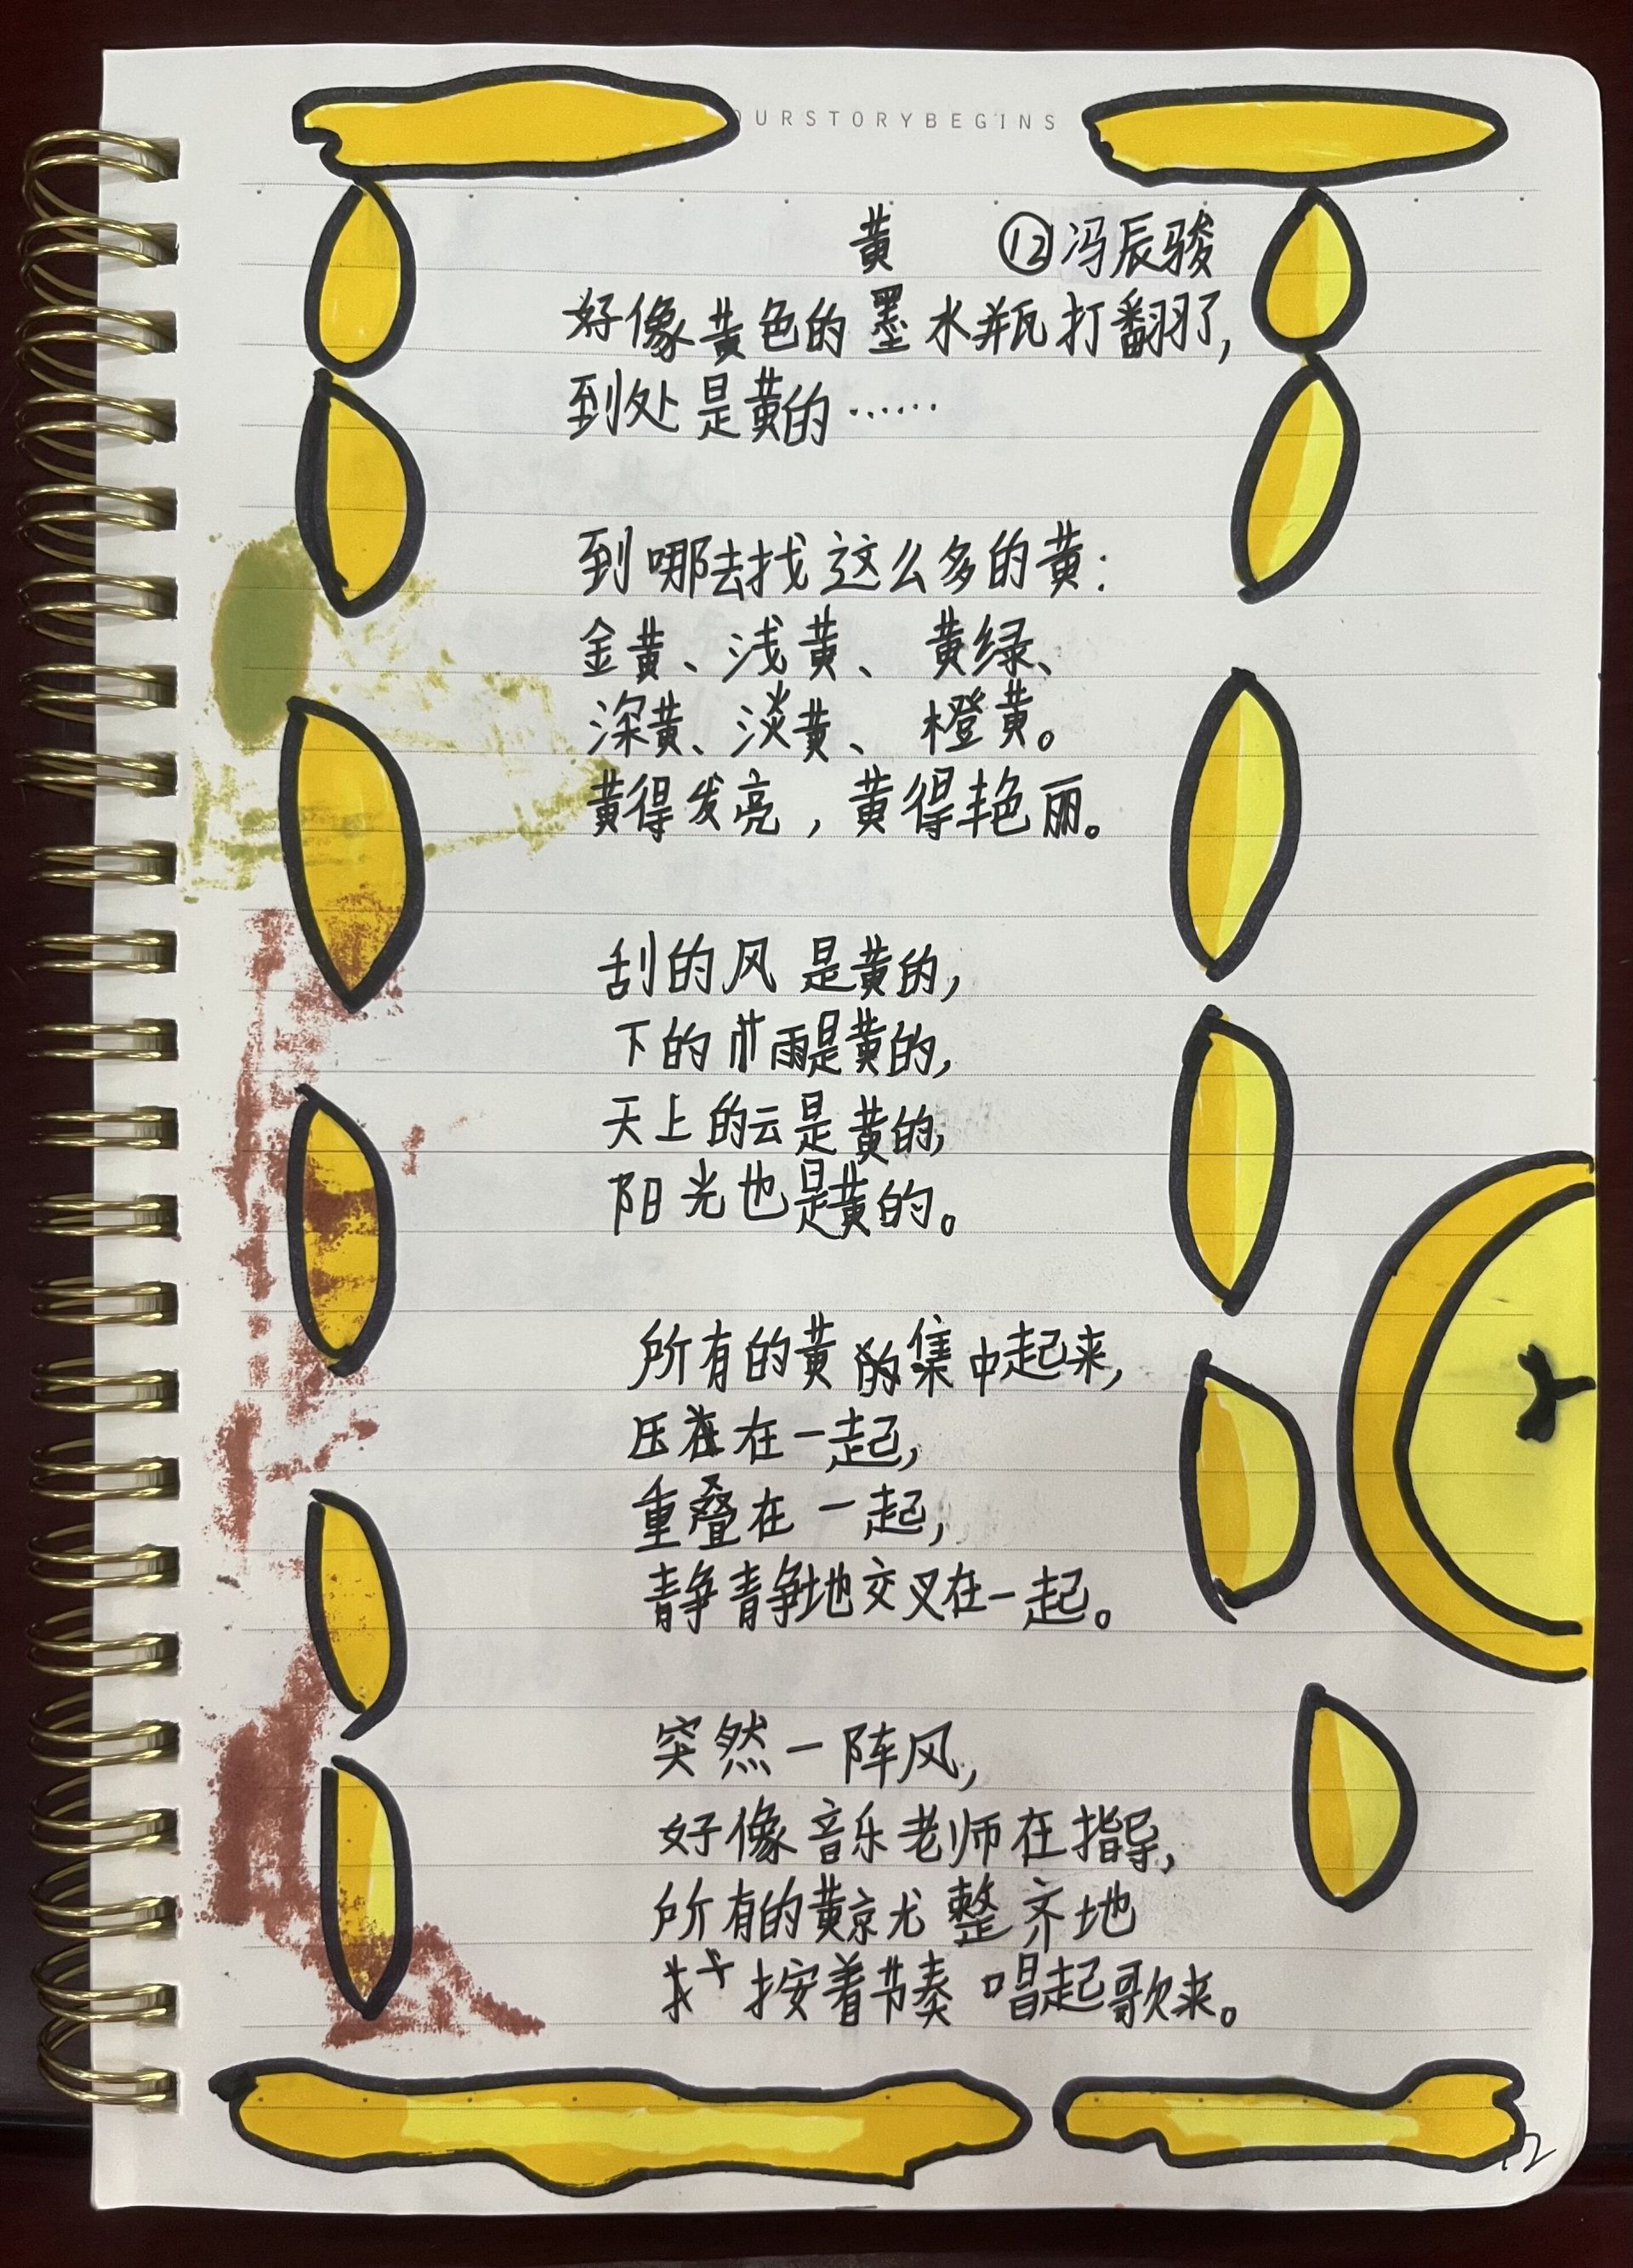 OURSTORYBEGINS
黄 ⑫冯辰骏
好像黄色的墨水瓶打翻了,
到处是黄的……
到哪去找这么多的黄:
金黄、浅黄、黄绿、
深黄、淡黄、橙黄。
黄得发亮,黄得艳丽。
刮的风是黄的,
下的雨是黄的,
天上的云是黄的,
阳光也是黄的。
所有的黄的集中起来,
压在在一起,
重叠在一起,
静静地交叉在一起。
突然一阵风,
好像音乐老师在指导,
所有的黄就整齐地
按着节奏唱起歌来。
12